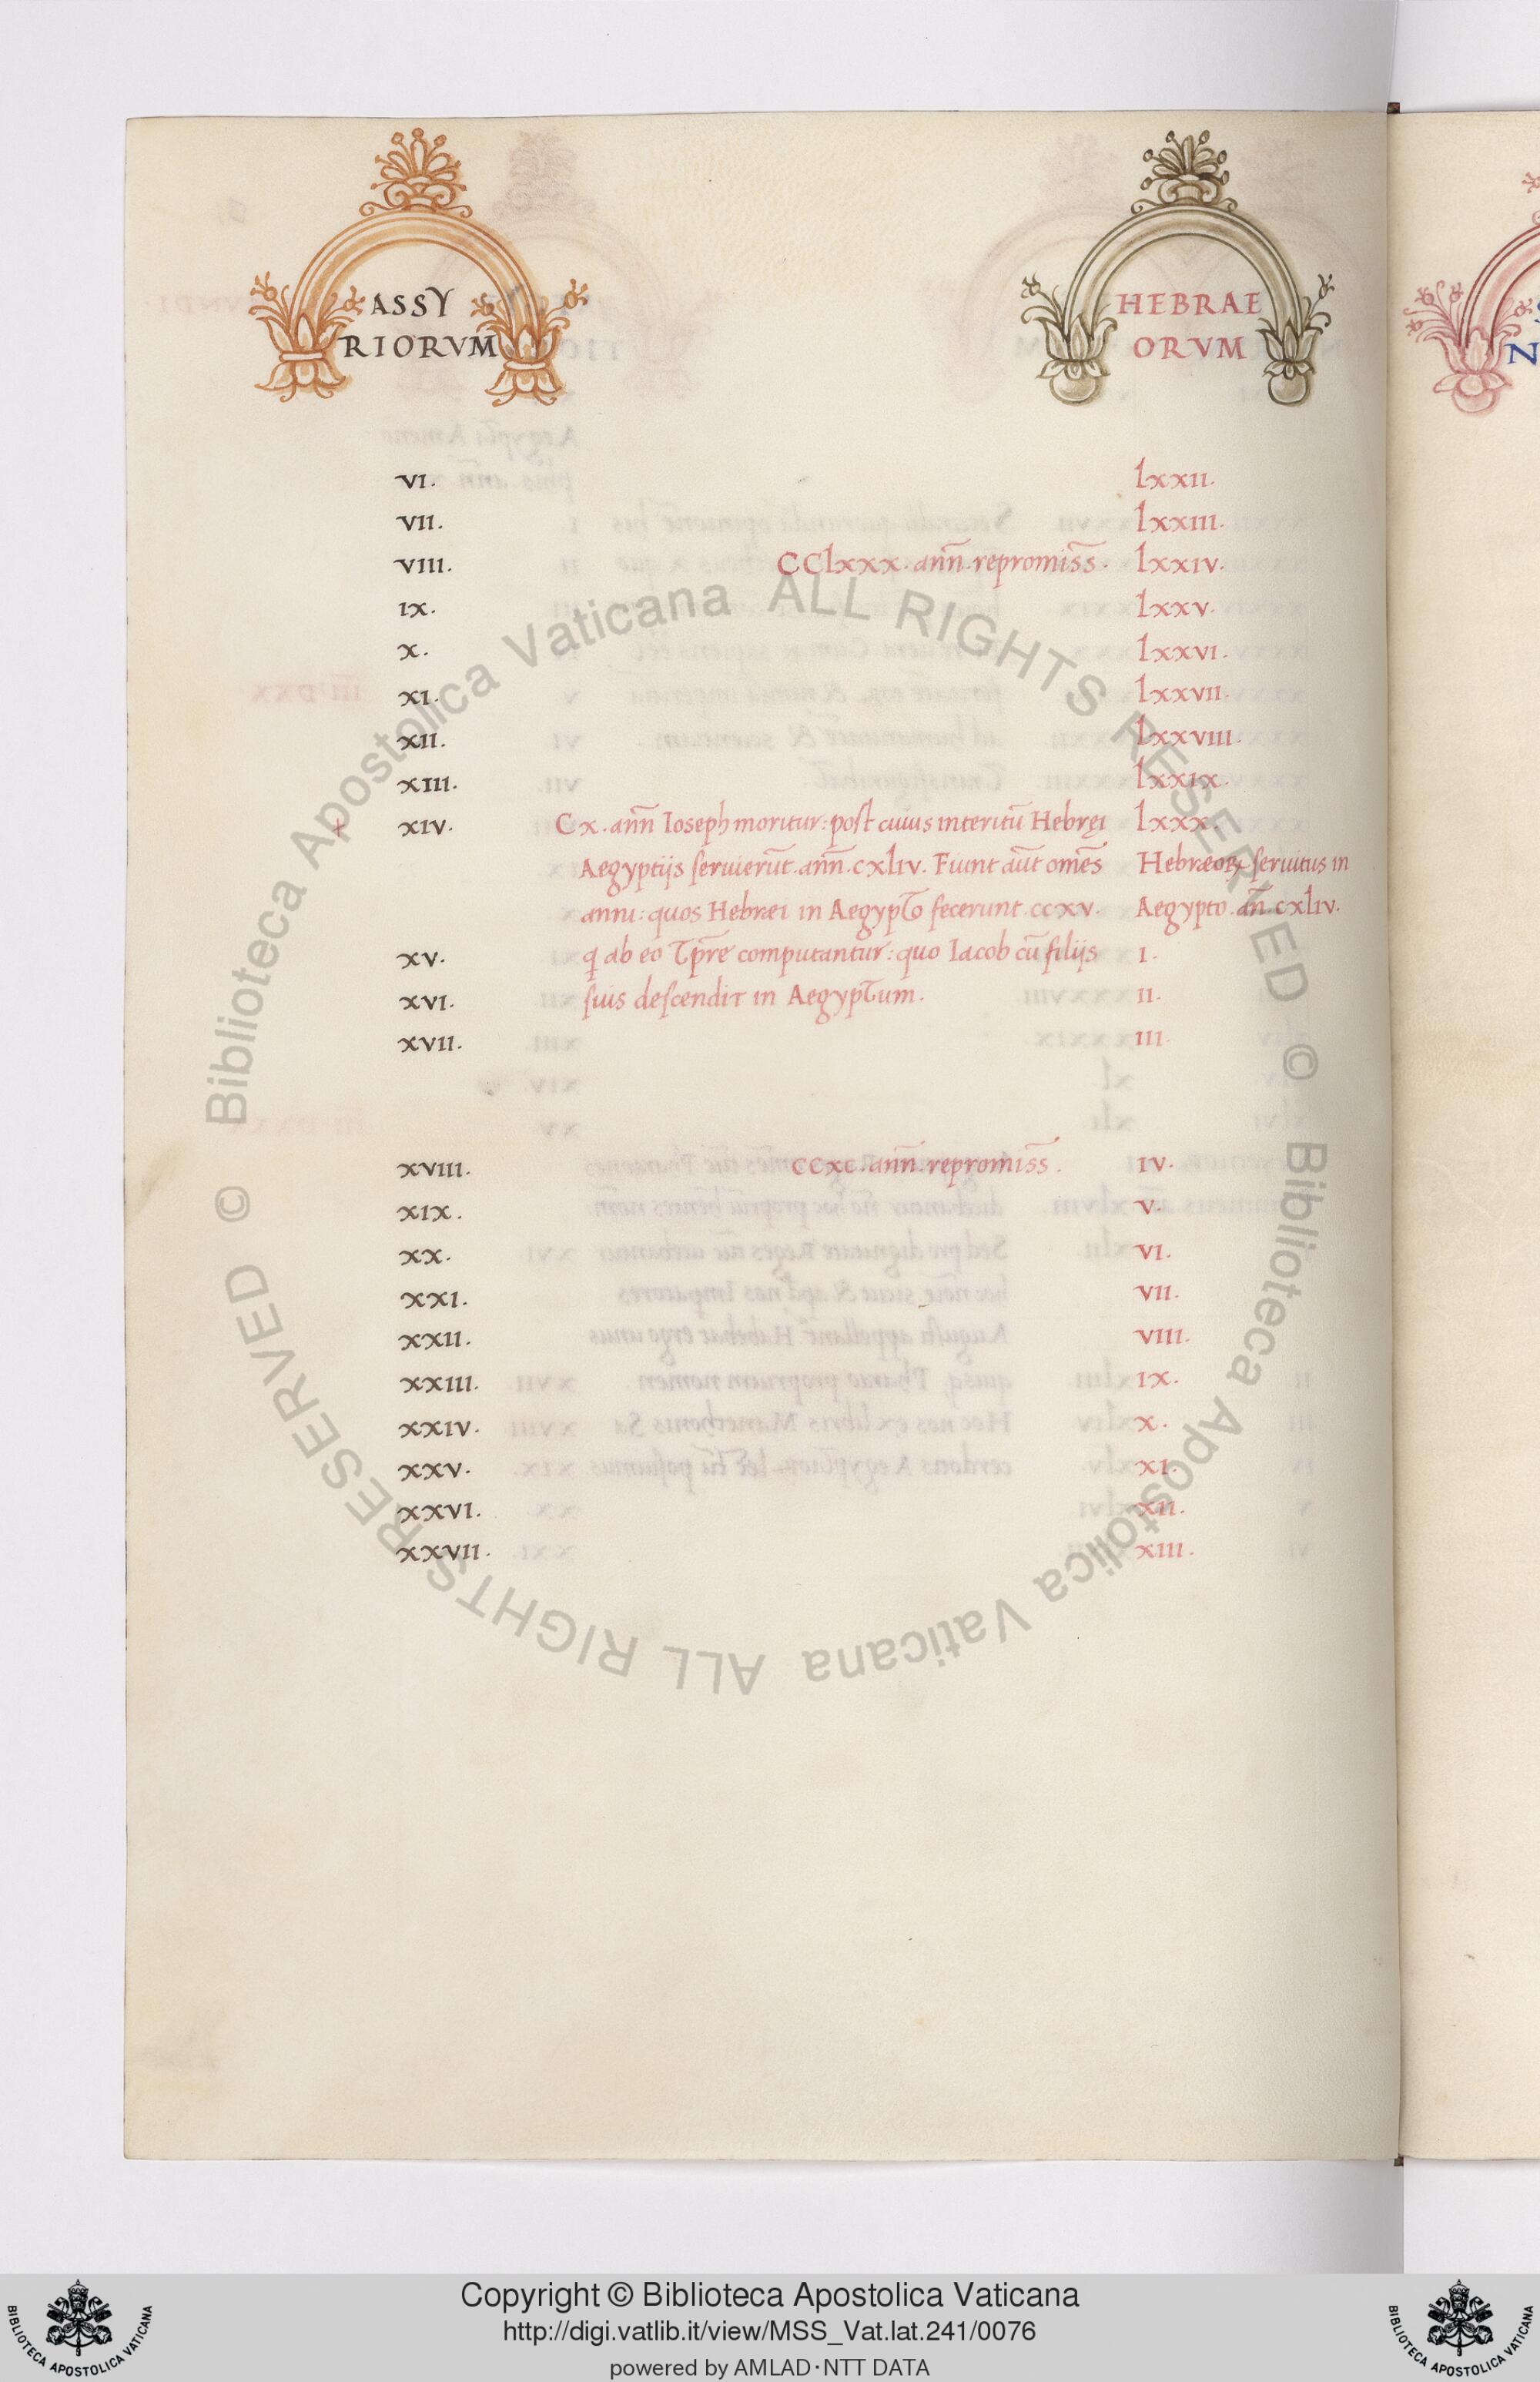 ASSY HEBRAE
RIORVM ORVM
VI. lxxII.
VII. lxxIII.
VIII. CClxxx. ann̄. repromis̄s. lxxIV.
IX. lxxV.
X. lxxVI.
XI. lxxVII.
XII. lxxVIII.
XIII. lxxIX.
+ XIV. Cx. ann̄ Ioseph moritur: post cuius interitū Hebręi lxxx.
Aegyptijs seruierūt. ann̄. cxlIV. Fiunt aūt om̄es Hebræoꝝ seruitus in
anni: quos Hebræi in Aegypto fecerunt. ccxv. Aegypto. an̄. cxlIV.
XV. q ab eo tp̄re computantur: quo Iacob cū filijs I.
XVI. suis descendit in Aegyptum. II.
XVII. III.
XVIII. CCXC. ann̄. repromis̄s. IV.
XIX. V.
XX. VI.
XXI. VII.
XXII. VIII.
XXIII. IX.
XXIV. X.
XXV. XI.
XXVI. XII.
XXVII. XIII.
© Biblioteca Apostolica Vaticana ALL RIGHTS RESERVED
© Biblioteca Apostolica Vaticana ALL RIGHTS RESERVED
Copyright © Biblioteca Apostolica Vaticana
http://digi.vatlib.it/view/MSS_Vat.lat.241/0076
powered by AMLAD·NTT DATA
BIBLIOTECA APOSTOLICA VATICANA
BIBLIOTECA APOSTOLICA VATICANA